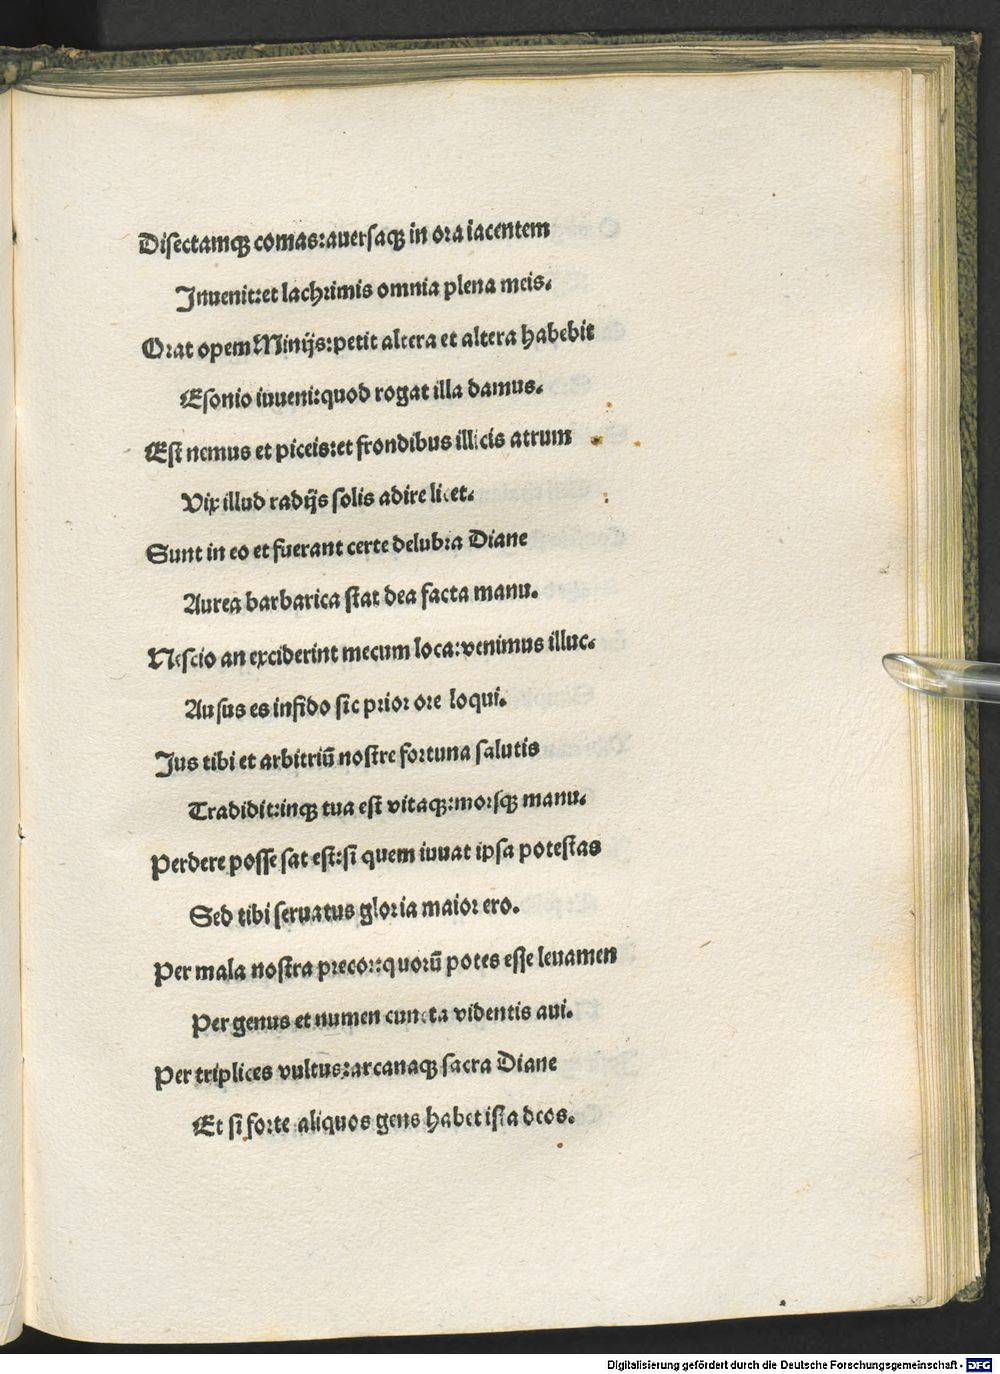 Disectamqꝫ comas:auersaqꝫ in ora iacentem
Inuenit:et lachrimis omnia plena meis.
Orat opem Minijs:petit altera et altera habebit
Esonio iuueni:quod rogat illa damus.
Est nemus et piceis:et frondibus illicis atrum
Vix illud radijs solis adire licet.
Sunt in eo et fuerant certe delubra Diane
Aurea barbarica stat dea facta manu.
Nescio an exciderint mecum loca:venimus illuc.
Ausus es infido sic prior ore loqui.
Jus tibi et arbitriū nostre fortuna salutis
Tradidit:inqꝫ tua est vitaqꝫ:morsqꝫ manu.
Perdere posse sat est:si quem iuuat ipsa potestas
Sed tibi seruatus gloria maior ero.
Per mala nostra precor:quorū potes esse leuamen
Per genus et numen cuncta videntis aui.
Per triplices vultus:arcanaqꝫ sacra Diane
Et si forte aliquos gens habet ista deos.
Digitalisierung gefördert durch die Deutsche Forschungsgemeinschaft - DFG